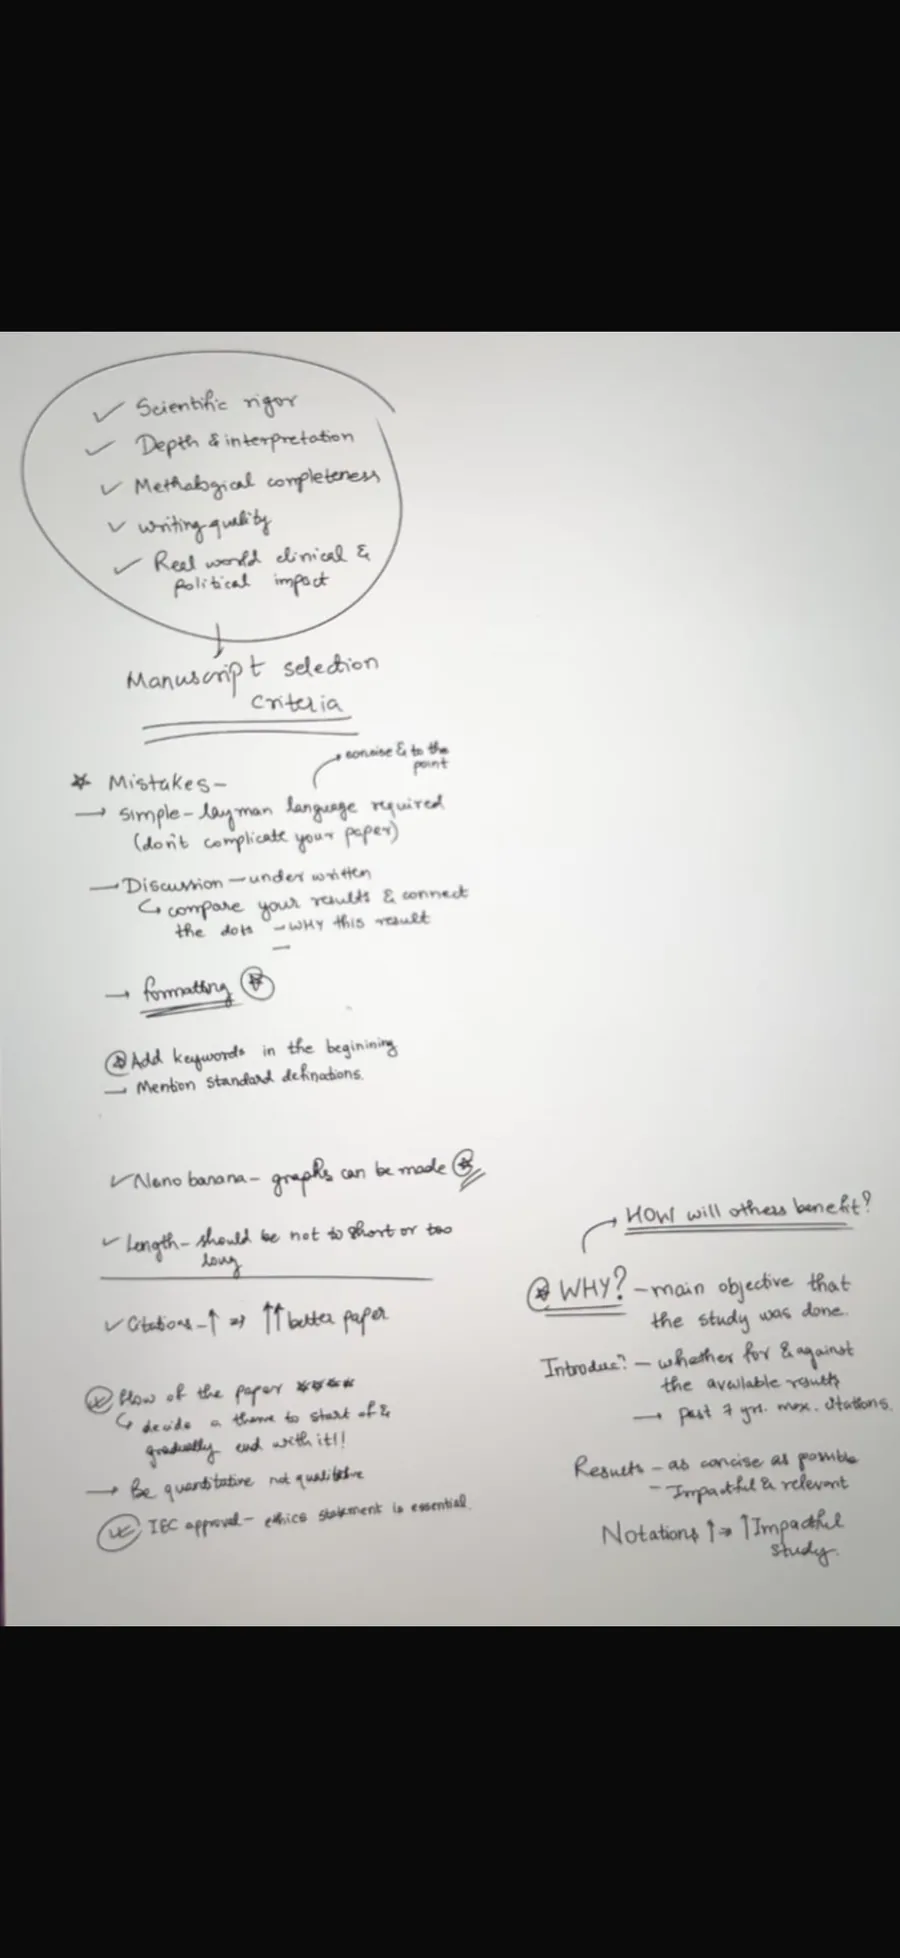 ✓ Scientific rigor
✓ Depth & interpretation
✓ Methalogical completeness
✓ writing quality
✓ Real world clinical &
political impact
Manuscript selection
criteria
concise & to the
point
* Mistakes-
→ simple - layman language required
(don't complicate your paper)
→ Discussion - under written
↳ compare your results & connect
the dots - WHY this result
→ formatting
Add keywords in the beginining
→ Mention standard definations.
✓ Nano banana - graphs can be made
✓ Length - should be not to short or too
long
✓ Citations - ↑ ⇒ ↑↑ better paper
flow of the paper ****
↳ decide a theme to start of &
gradually end with it!!
→ Be quantitative not qualitative
IEC approval - ethics statement is essential.
HOW will others benefit?
* WHY? - main objective that
the study was done.
Introduc? - whether for & against
the available results
→ past 7 yrs. max. citations.
Results - as concise as possible
- Impactful & relevant
Notations ↑ ⇒ ↑ Impactful
study.